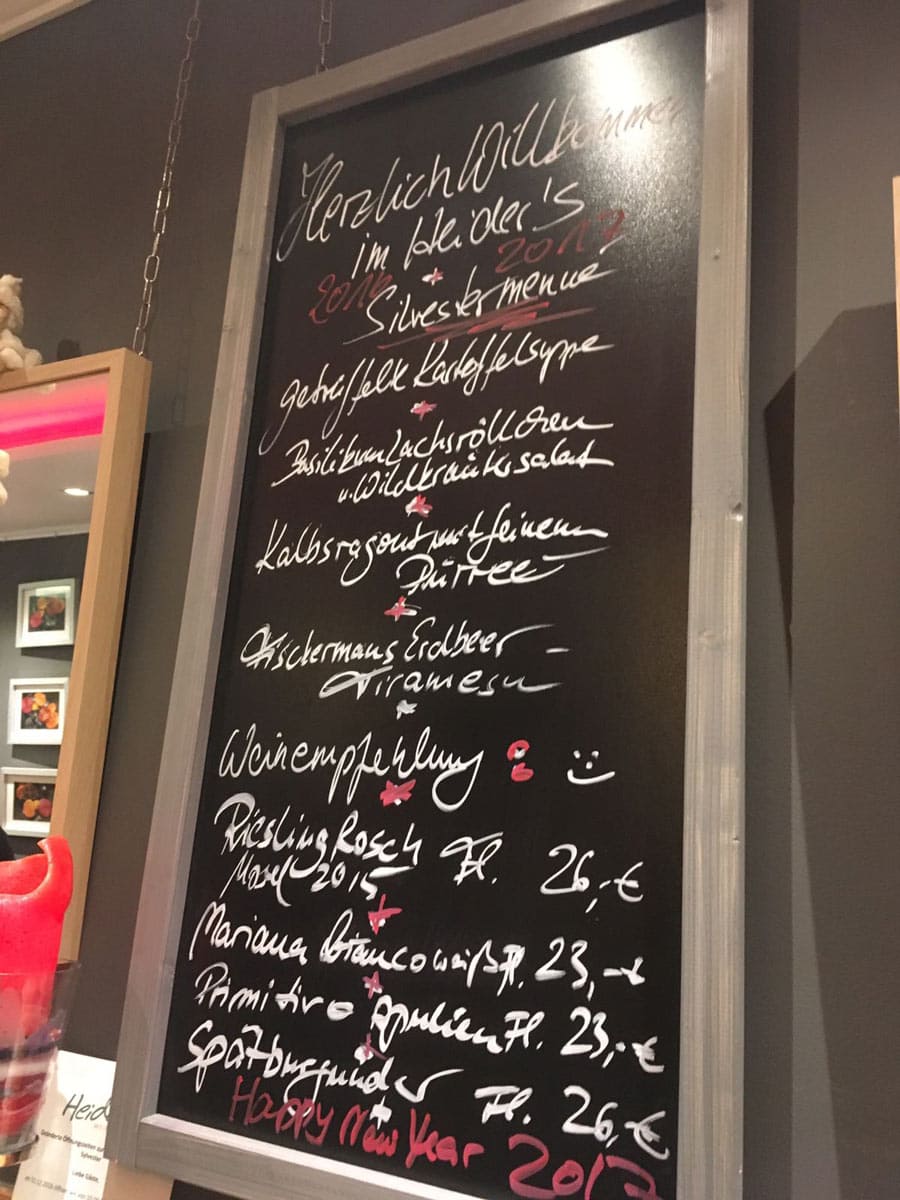 Herzlich Willkommen
im Heider's
2016 2017
Silvestermenue
getrüffelte Kartoffelsuppe
Basilikum Lachsröllchen
u. Wildkräutersalat
Kalbsragout mit feinem
Pürree
Fischermans Erdbeer-
Tiramesu
Weinempfehlung
Riesling Rosch Fl. 26,-€
Mosel 2015
Mariana bianco weiß Fl. 23,-€
Primitivo Apulien Fl. 23,-€
Spätburgunder Fl. 26,-€
Happy New Year 2017
Heid
Geänderte Öffnungszeiten
Silvester
Liebe Gäste,